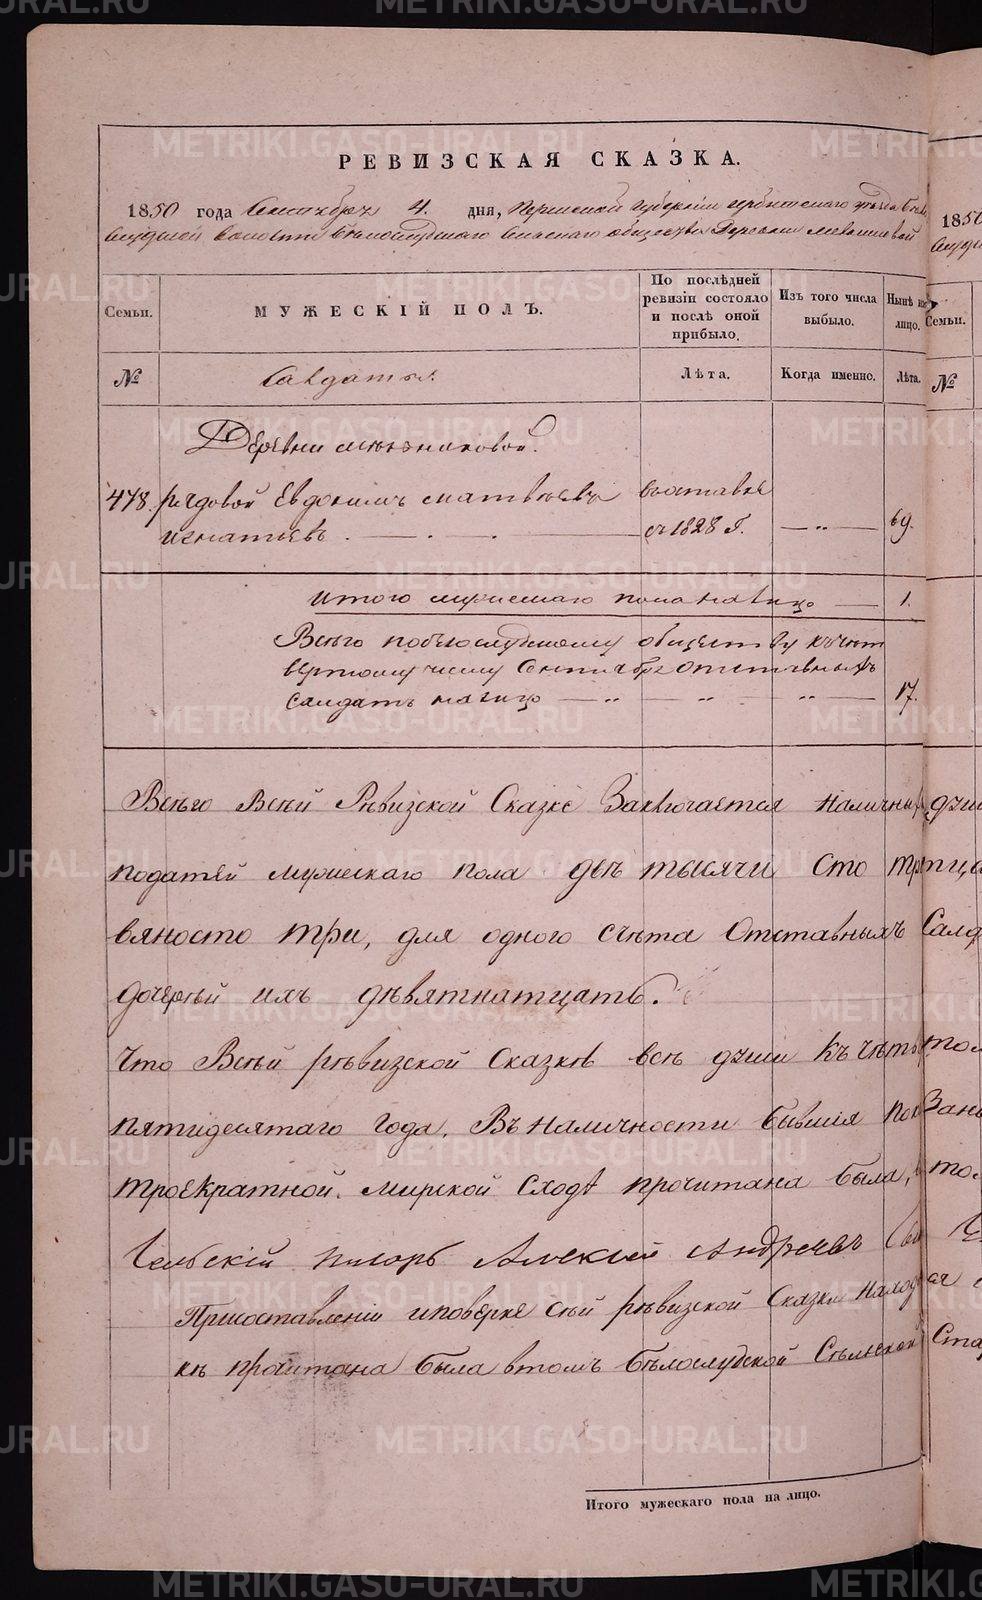 METRIKI.GASO-URAL.RU
РЕВИЗСКАЯ СКАЗКА.
1850 года Сентября 4. дня, Пермской Губернии Ирбитского уезда Бело
слудской волости Белослудского Сельского общества Деревни
Семьи.
МУЖЕСКІЙ ПОЛЪ.
По послѣдней ревизіи состояло и послѣ оной прибыло.
Изъ того числа выбыло.
Нынѣ на лицо.
№
Салдаты.
Лѣта.
Когда именно.
Лѣта.
Деревни
478. рядовой Евдокимъ Матвѣевъ в отставке
Игнатьевъ с 1828 Г. 69.
Итого мужескаго пола на лицо 1.
Всего по Белослудскому обществу къ чет
вертому числу Сентября отставныхъ
салдатъ на лицо 17.
Всѣго Всѣй Рѣвизской Сказке Заключается наличныхъ
податей мужескаго пола двѣ тысячи сто
вяносто три, для одного счѣта Отставныхъ
дочерѣй ихъ дѣвятнатцать.
Что Всѣй рѣвизской Сказкѣ всѣ души Къ
пятидесятаго года. Въ наличности бывшия
троекратной. мирской сходѣ прочитана была,
писарь Алексей Андреевъ
При составлении и поверке сѣй рѣвизской Сказки
кѣ прочитана была в томъ бѣлослудской Сѣльской
Итого мужескаго пола на лицо.
1850
Семьи.
№